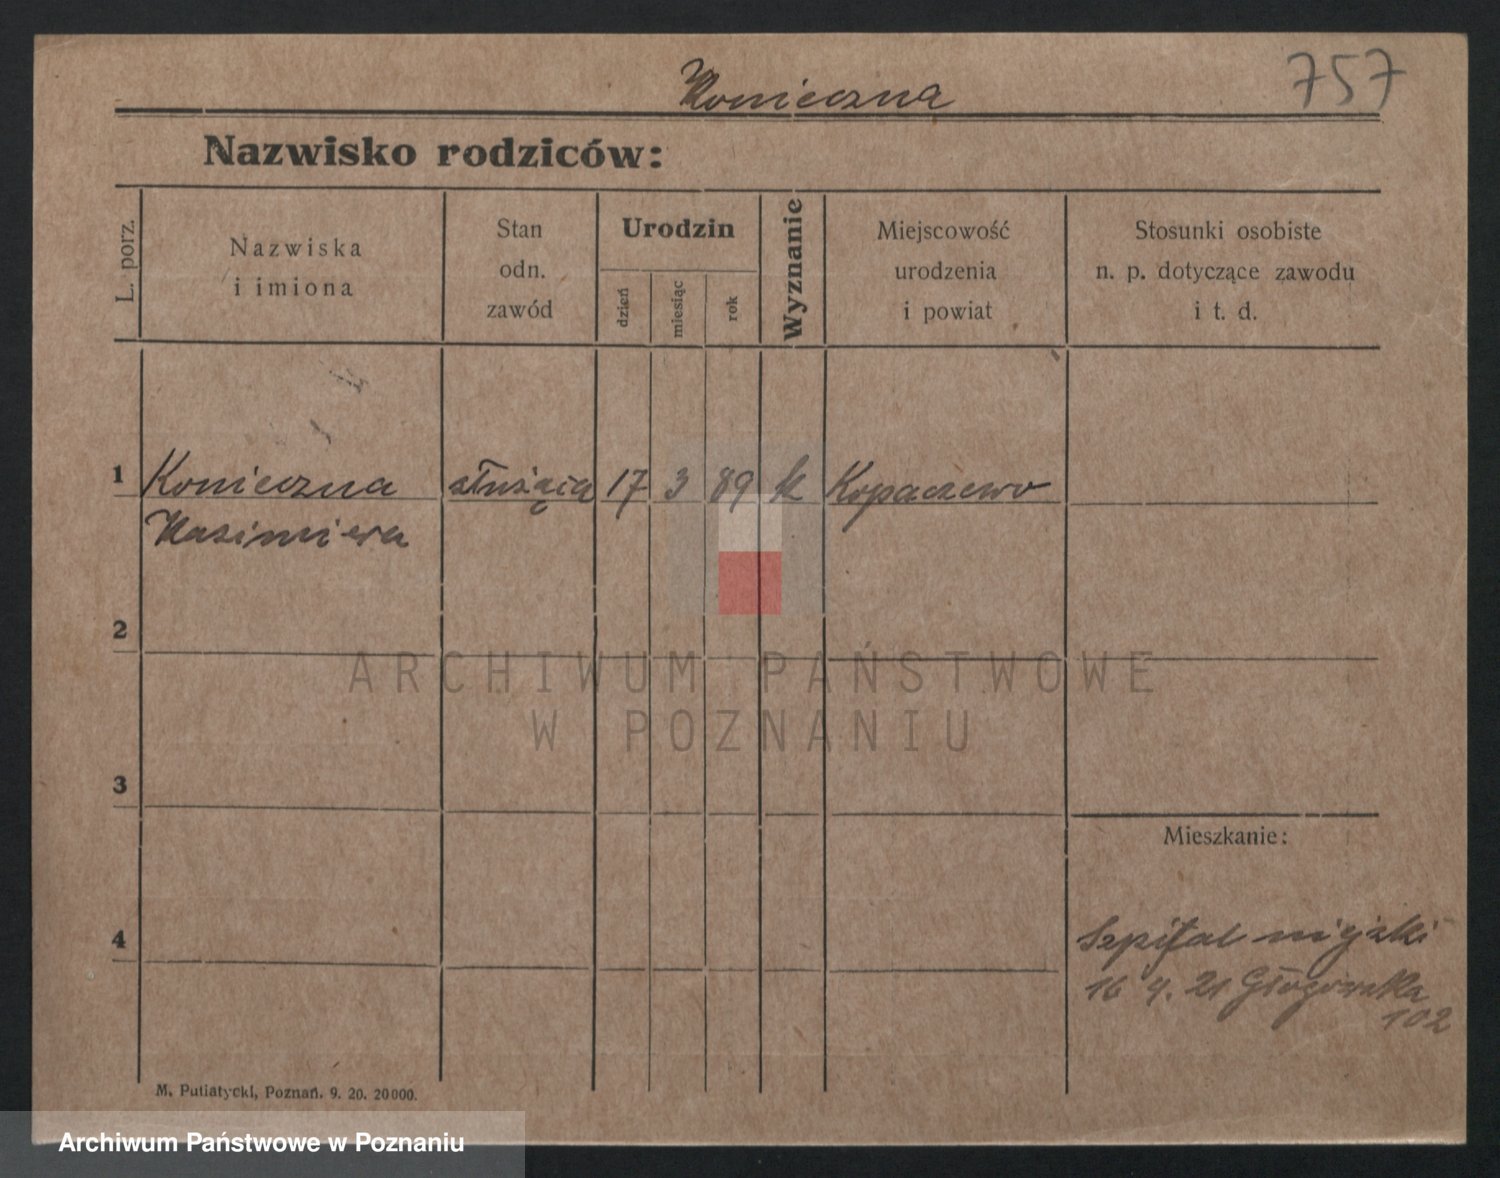 Konieczna
757
Nazwisko rodziców:
L. porz.
Nazwiska
i imiona
Stan
odn.
zawód
Urodzin
dzień
miesiąc
rok
Wyznanie
Miejscowość
urodzenia
i powiat
Stosunki osobiste
n. p. dotyczące zawodu
i t. d.
1 Konieczna służąca 17 3 89 k Kopaczewo
Kazimiera
2
ARCHIWUM PAŃSTWOWE
W POZNANIU
3
Mieszkanie:
4
Szpital miejski
16 4. 21 Głogowska
102
M. Putiatycki, Poznań. 9. 20. 20000.
Archiwum Państwowe w Poznaniu